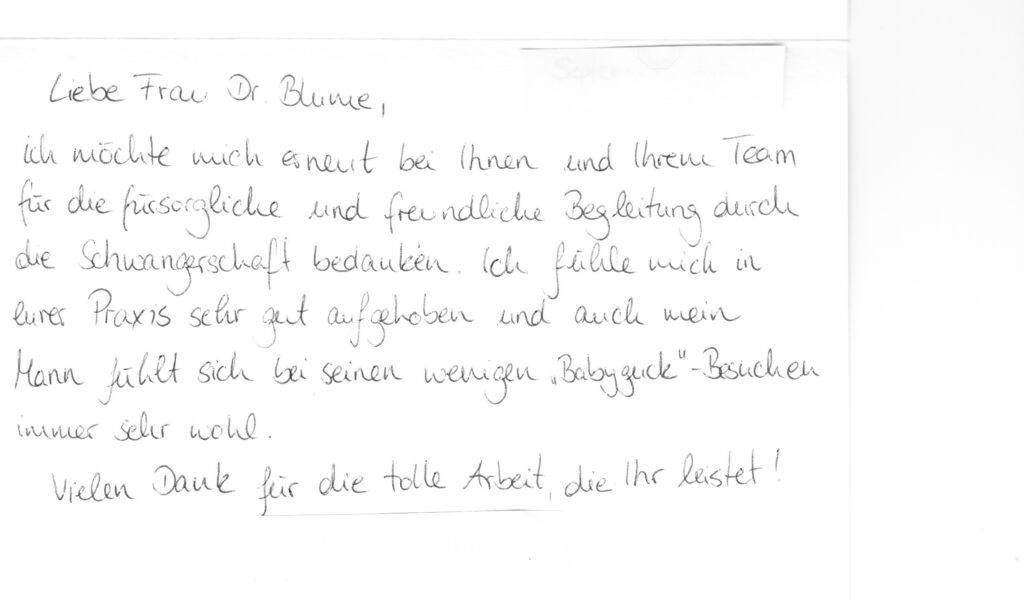 Liebe Frau Dr. Blume,
ich möchte mich erneut bei Ihnen und Ihrem Team
für die fürsorgliche und freundliche Begleitung durch
die Schwangerschaft bedanken. Ich fühle mich in
eurer Praxis sehr gut aufgehoben und auch mein
Mann fühlt sich bei seinen wenigen „Babyguck"-Besuchen
immer sehr wohl.
Vielen Dank für die tolle Arbeit, die Ihr leistet!